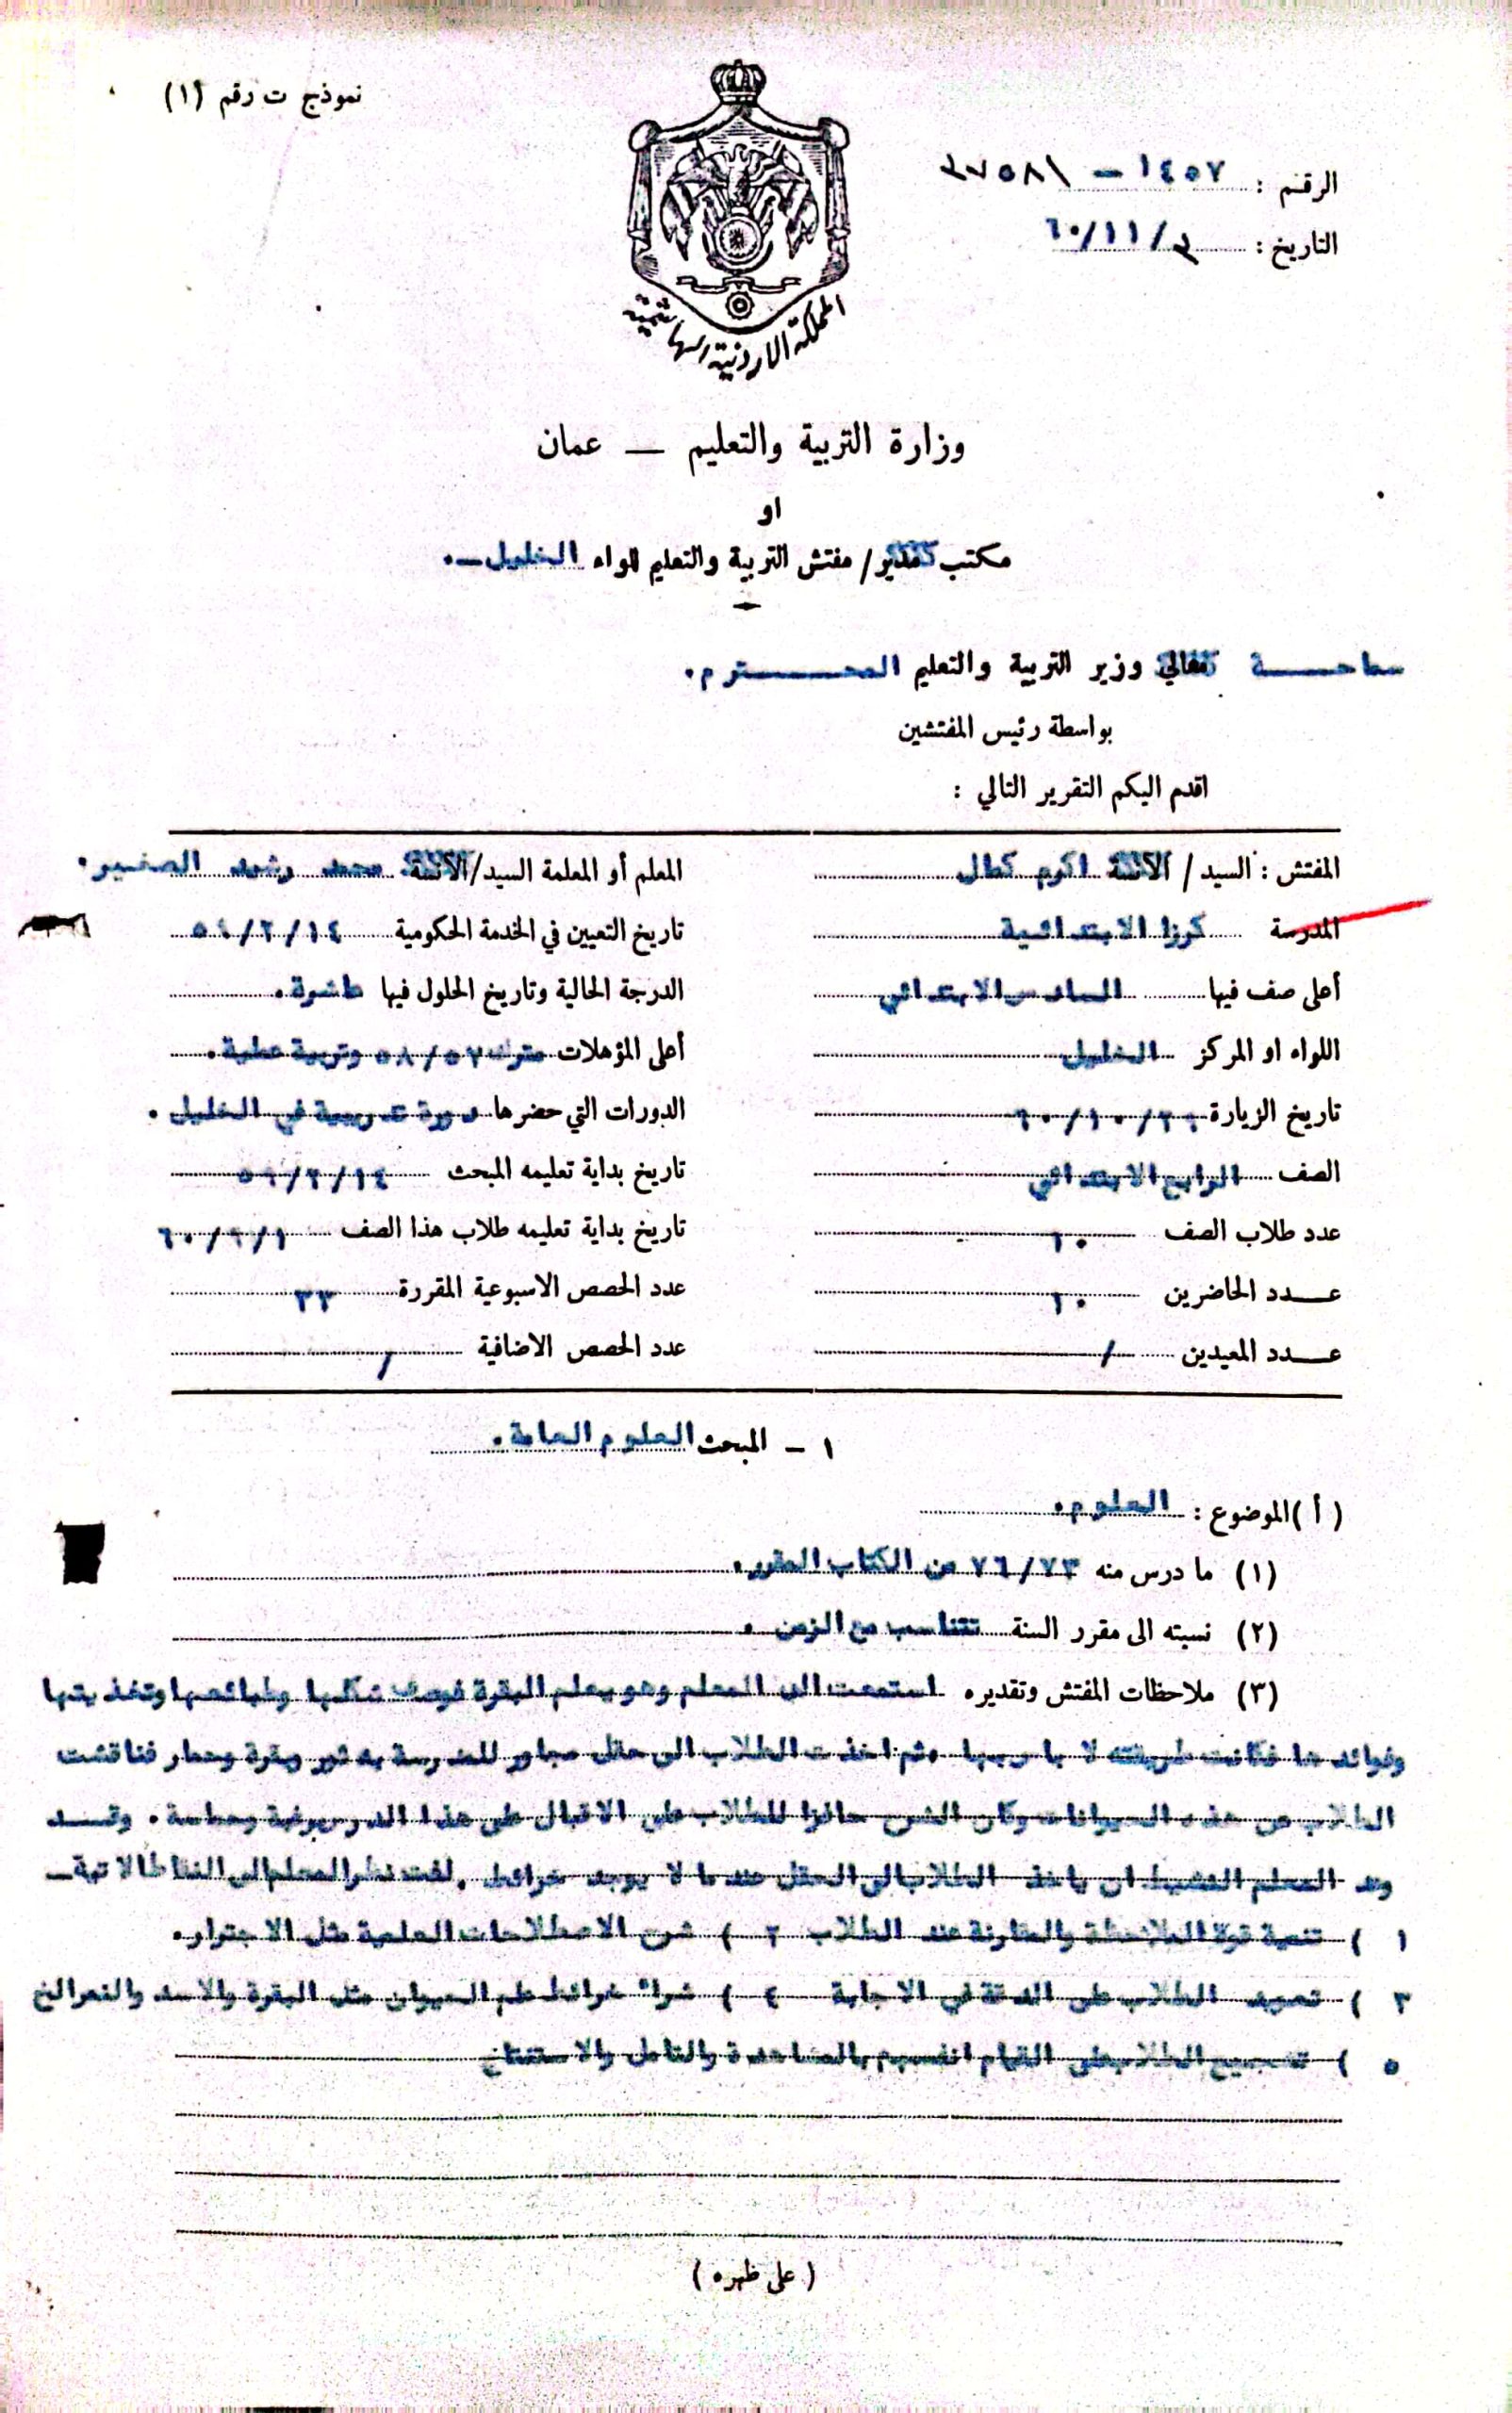 نموذج ت رقم (١)
الرقم : ١٤٥٧ –
التاريخ : ٦٠/١١/٢
المملكة الاردنية الهاشمية
وزارة التربية والتعليم — عمان
او
مكتب مدير/ مفتش التربية والتعليم للواء الخليل ـ.
سماحـــة معالي وزير التربية والتعليم المحـــترم.
بواسطة رئيس المفتشين
اقدم اليكم التقرير التالي :
المفتش : السيد / الآنسة اكرم كمال
المعلم أو المعلمة السيد/الآنسة محمد رشيد الصغير.
المدرسة كرزا الابتدائية
تاريخ التعيين في الخدمة الحكومية ٥٩/٢/١٤
أعلى صف فيها السادس الابتدائي
الدرجة الحالية وتاريخ الحلول فيها عاشرة.
اللواء او المركز الخليل
أعلى المؤهلات مترك ٥٨/٥٧ وتربية عملية.
تاريخ الزيارة ٦٠/١٠/٢٩
الدورات التي حضرها دورة تدريبية في الخليل.
الصف الرابع الابتدائي
تاريخ بداية تعليمه المبحث ٥٩/٢/١٤
عدد طلاب الصف ١٠
تاريخ بداية تعليمه طلاب هذا الصف ٦٠/٩/١
عـــدد الحاضرين ١٠
عدد الحصص الاسبوعية المقررة ٣٣
عـــدد المعيدين /
عدد الحصص الاضافية /
١ – المبحث العلوم العامة.
( أ )الموضوع : العلوم.
(١) ما درس منه ٧٦/٧٣ من الكتاب المقرر.
(٢) نسبته الى مقرر السنة تتناسب مع الزمن .
(٣) ملاحظات المفتش وتقديره استمعت الى المعلم وهو يعلم البقرة فوصف شكلها وطبائعها وتغذيتها
وفوائدها فكانت طريقته لا باس بها ,ثم اخذت الطلاب الى حقل مجاور للمدرسة به ثور وبقرة وحمار فناقشت
الطلاب عن هذه الحيوانات وكان الشرح حافزا للطلاب على الاقبال على هذا الدرس برغبة وحماسة . وقـــد
وعد المعلم النشيط ان ياخذ الطلاب الى الحقل عندما لا يوجد خرائط . لفت نظر المعلم الى النقاط الاتية ـ
١ ) تنمية قوة الملاحظة والمقارنة عند الطلاب ٢ ) شرح الاصطلاحات العلمية مثل الاجترار.
٣ ) تعويد الطلاب على الدقة في الاجابة ٤ ) شراء خرائط علم الحيوان مثل البقرة والاسد والنمر الخ
٥ ) تشجيع الطلاب على القيام انفسهم بالمشاهدة والتامل والاستنتاج
( على ظهره )